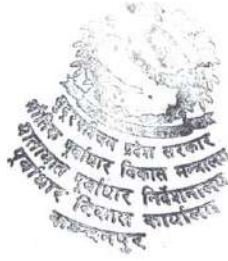 सुदूरपश्चिम प्रदेश सरकार
भौतिक पूर्वाधार विकास मन्त्रालय
यातायात पूर्वाधार निर्देशनालय
पूर्वाधार विकास कार्यालय
कञ्चनपुर